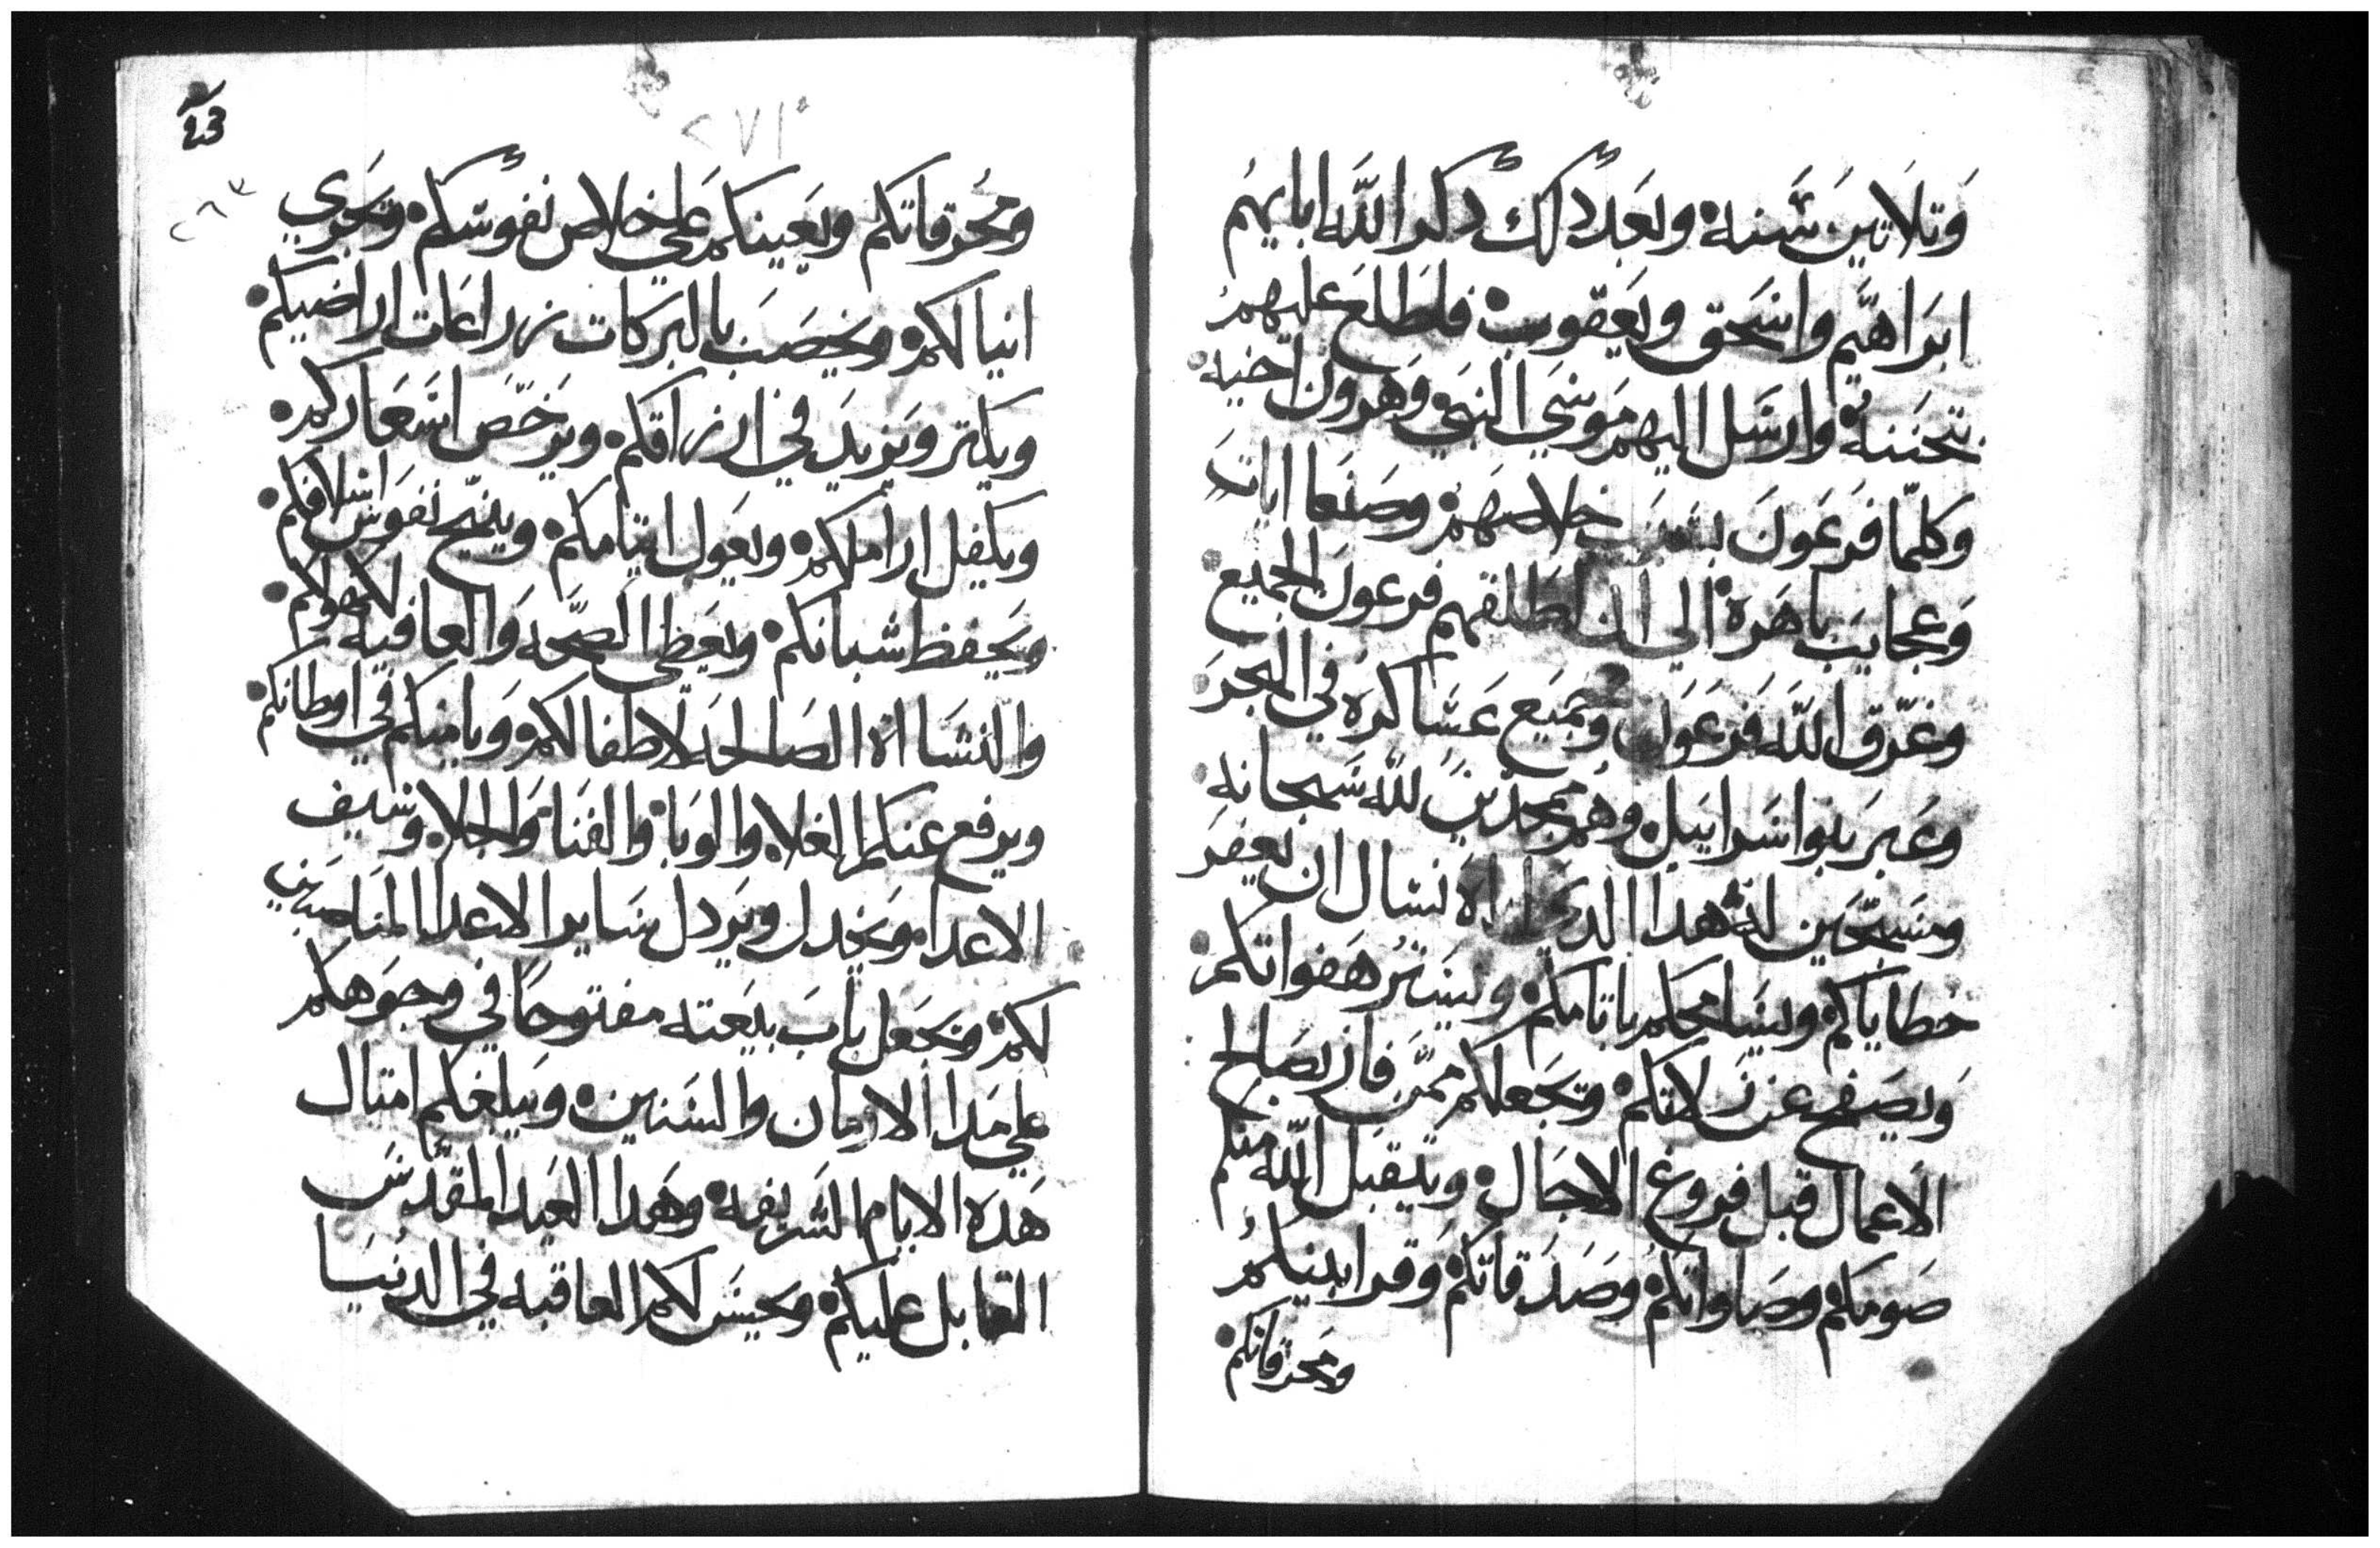 وَتلَاتينَ سَنه وبَعدَ دَلك دكر اللَّه ابايهم
ابرَاهيَم واسَحق ويَعقوب فلطَلعَ عليهم
بتحَننهُ وارسَل اليهم مَوسَي النبَي وَهرون اخيه
وكلمّا فرَعَونَ بسَبَب خلاصَهم وصَنعَا اياتَ
وَعجايبَ باهَرَه الي ان اطَلقهم فرعَون الجميع
وغرّق اللَّه فرعَون وجَميَع عَسَاكرهَ في البحَرَ
وعَبرَ بنوا اسَراييَل وهُم ممجدَينَ للَّه سَبحانه
ومسَبّحَين لهُ هدا الدَي اياهَ نسَال ان يغفرَ
خطاياكم ويسَامحكم باتامكم ويسَترُ هَفواتكم
وَيصَفح عن زلاتكم وتجَعلكم ممّن فاز بصَالح
الاعمال قبل فروغ الاجَال ويتقبَل اللّه منكم
صَومكم وصَلواتكم وصَدَقاتكم وَقرابينكم
ومَحرقاتكم
23
٢٧١
٢٦٣
ومحُرقاتكم ويعَينكم عَلي خلاص نفوسَكم وتجَري
انيالكم ويخصَبَ بالبرَكات زراعَات اراضيكم
ويكتر وَيزيدَ في ارزاقكم ويرَخّصَ اسَعَاركم
ويكفل اراملكم ويعَول ايتامكم وينيّح نفوسَ اسَلافكم
ويَحفظ شبانكم ويعَطي الصّحَه وَالعافيه لكهولكم
والنشَااه الصَالحه لاطفالكم وَيامنكم في اوطانكم
ويرفع عنكم الغلاء والوَباء والفنَاء وَالجلاء وسَيف
الاعدا ويَخدل ويَردل سَاير الاعدا المنَاصبين
لكم ويَجعَل بابَ بيعَته مفتوحًا في وجوَهكم
علي مَدا الازمان والسَنين ويَبلغكم امتال
هَدهَ الايام الشرَيفه وهَدا العيَد المقدَّسَ
القابل عليكم ويحسَن لكم العاقبه في الدنُيَا